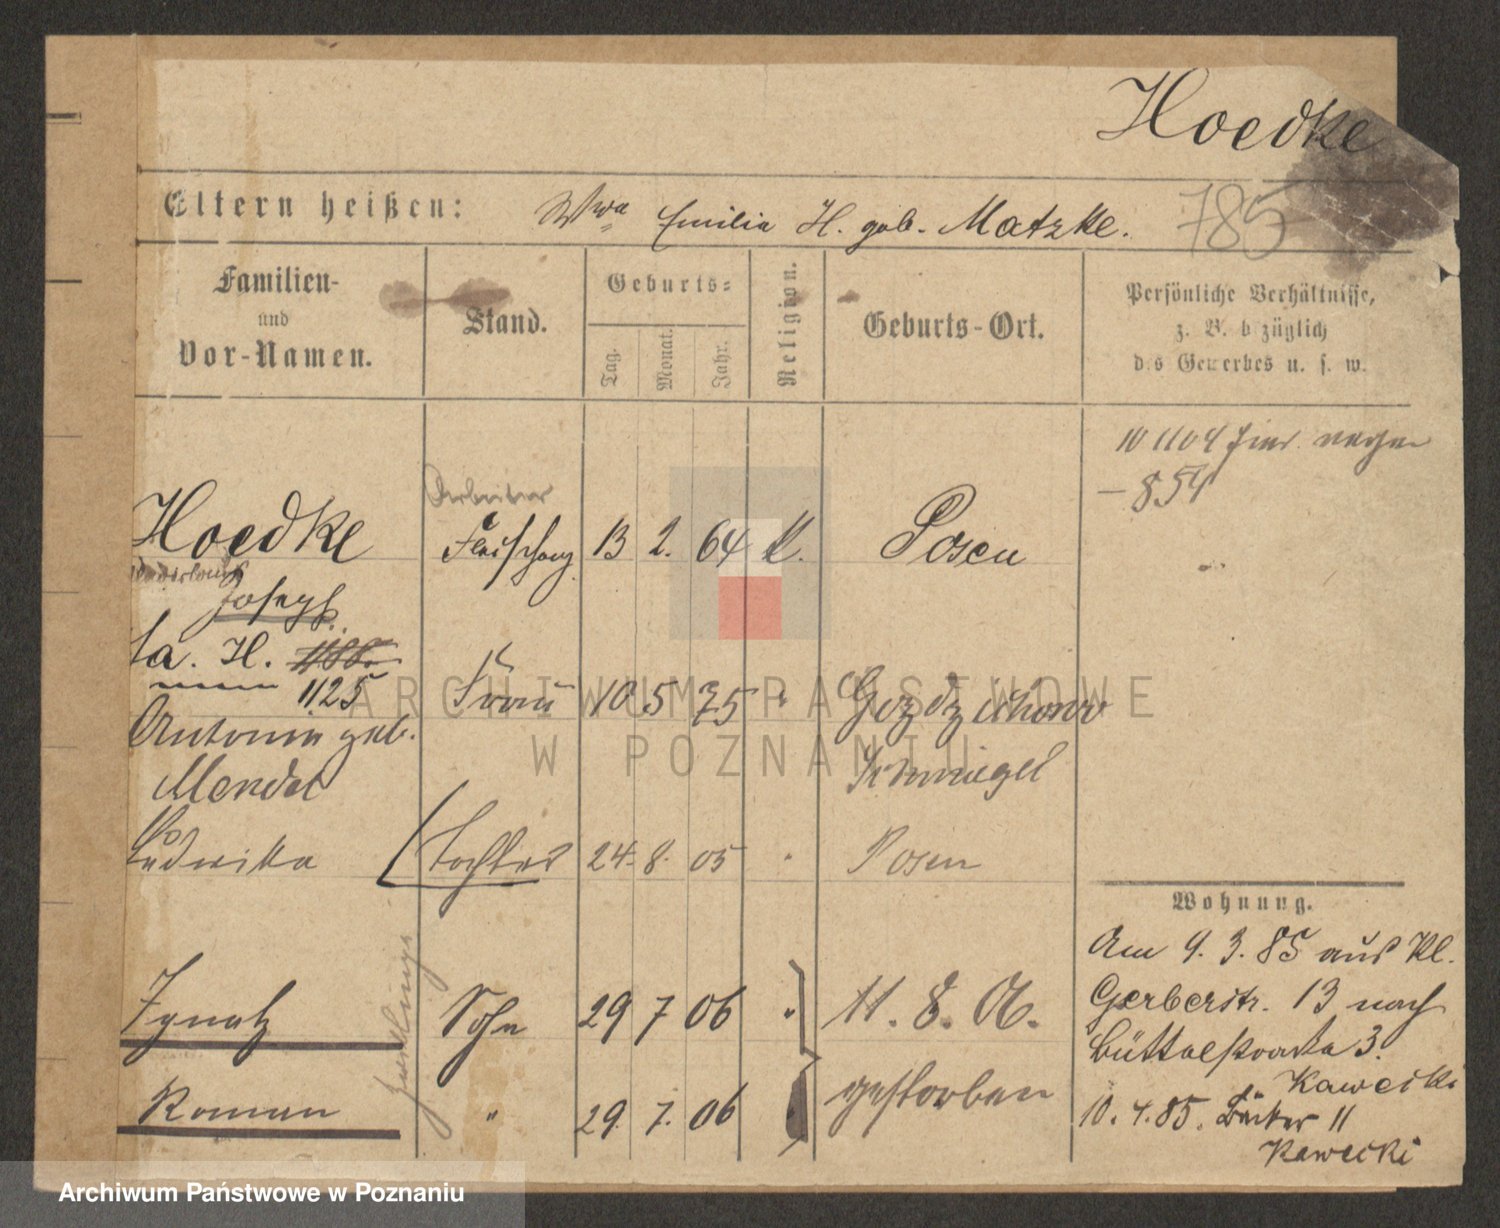 Hoedke
Eltern heißen: Wwe Emilia H. geb. Matzke. 785
Familien- und Vor-Namen.
Stand.
Geburts-
Tag. Monat. Jahr.
Religion.
Geburts-Ort.
Persönliche Verhältnisse,
z. B. bezüglich
des Gewerbes u. s. w.
10 11 04
- 854
Arbeiter
Hoedke 13 2. 64 K. Posen
Joseph
H.
1125 Frau 10 5 75 "
Antonie geb.
Mendel Schmiegel
Ludwika Tochter 24. 8. 05 " Posen
Wohnung.
Am 9. 3. 85 aus Kl.
Gerberstr. 13 nach
Büttelstraße 3.
Kawecki
10. 4. 85. Bäcker 11
Kawecki
Zwillinge
Ignatz Sohn 29 7 06 " 11. 8. 06.
Roman " 29. 7. 06 gestorben
ARCHIWUM PAŃSTWOWE
W POZNANIU
Archiwum Państwowe w Poznaniu